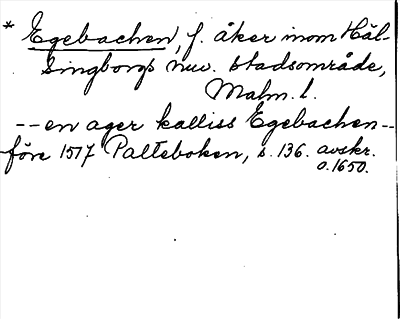 * Egebachen, f. åker inom Häl-
singborgs nuv. stadsområde,
Malm. l.
-- en ager kalliss Egebachen --
före 1517 Palteboken, s. 136. avskr.
o. 1650.